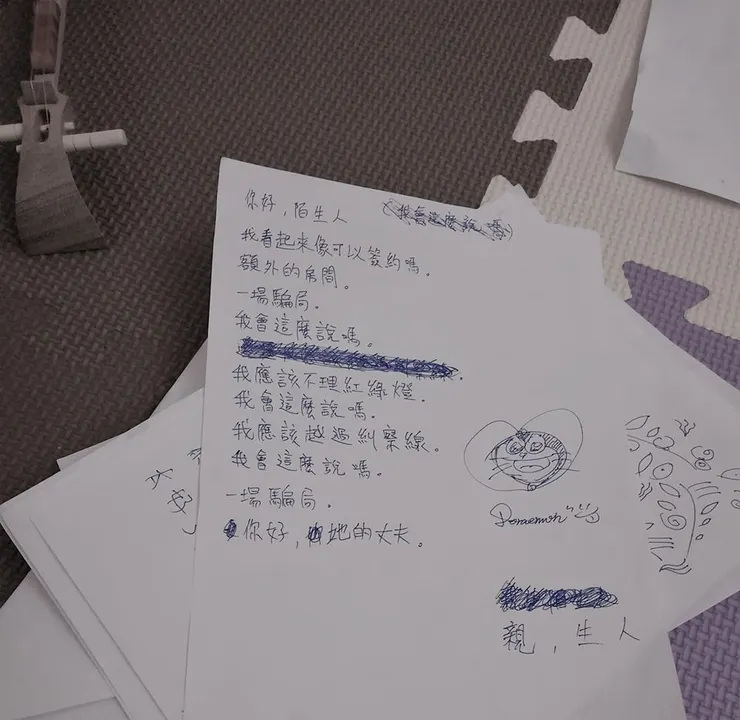 你好，陌生人
(我會這麼說嗎)
我看起來像可以簽約嗎。
額外的房間。
一場騙局。
我會這麼說嗎。
我應該不理紅綠燈。
我會這麼說嗎。
我應該越過糾察線。
我會這麼說嗎。
一場騙局。
你好，她的丈夫。
Doraemon
親，生人